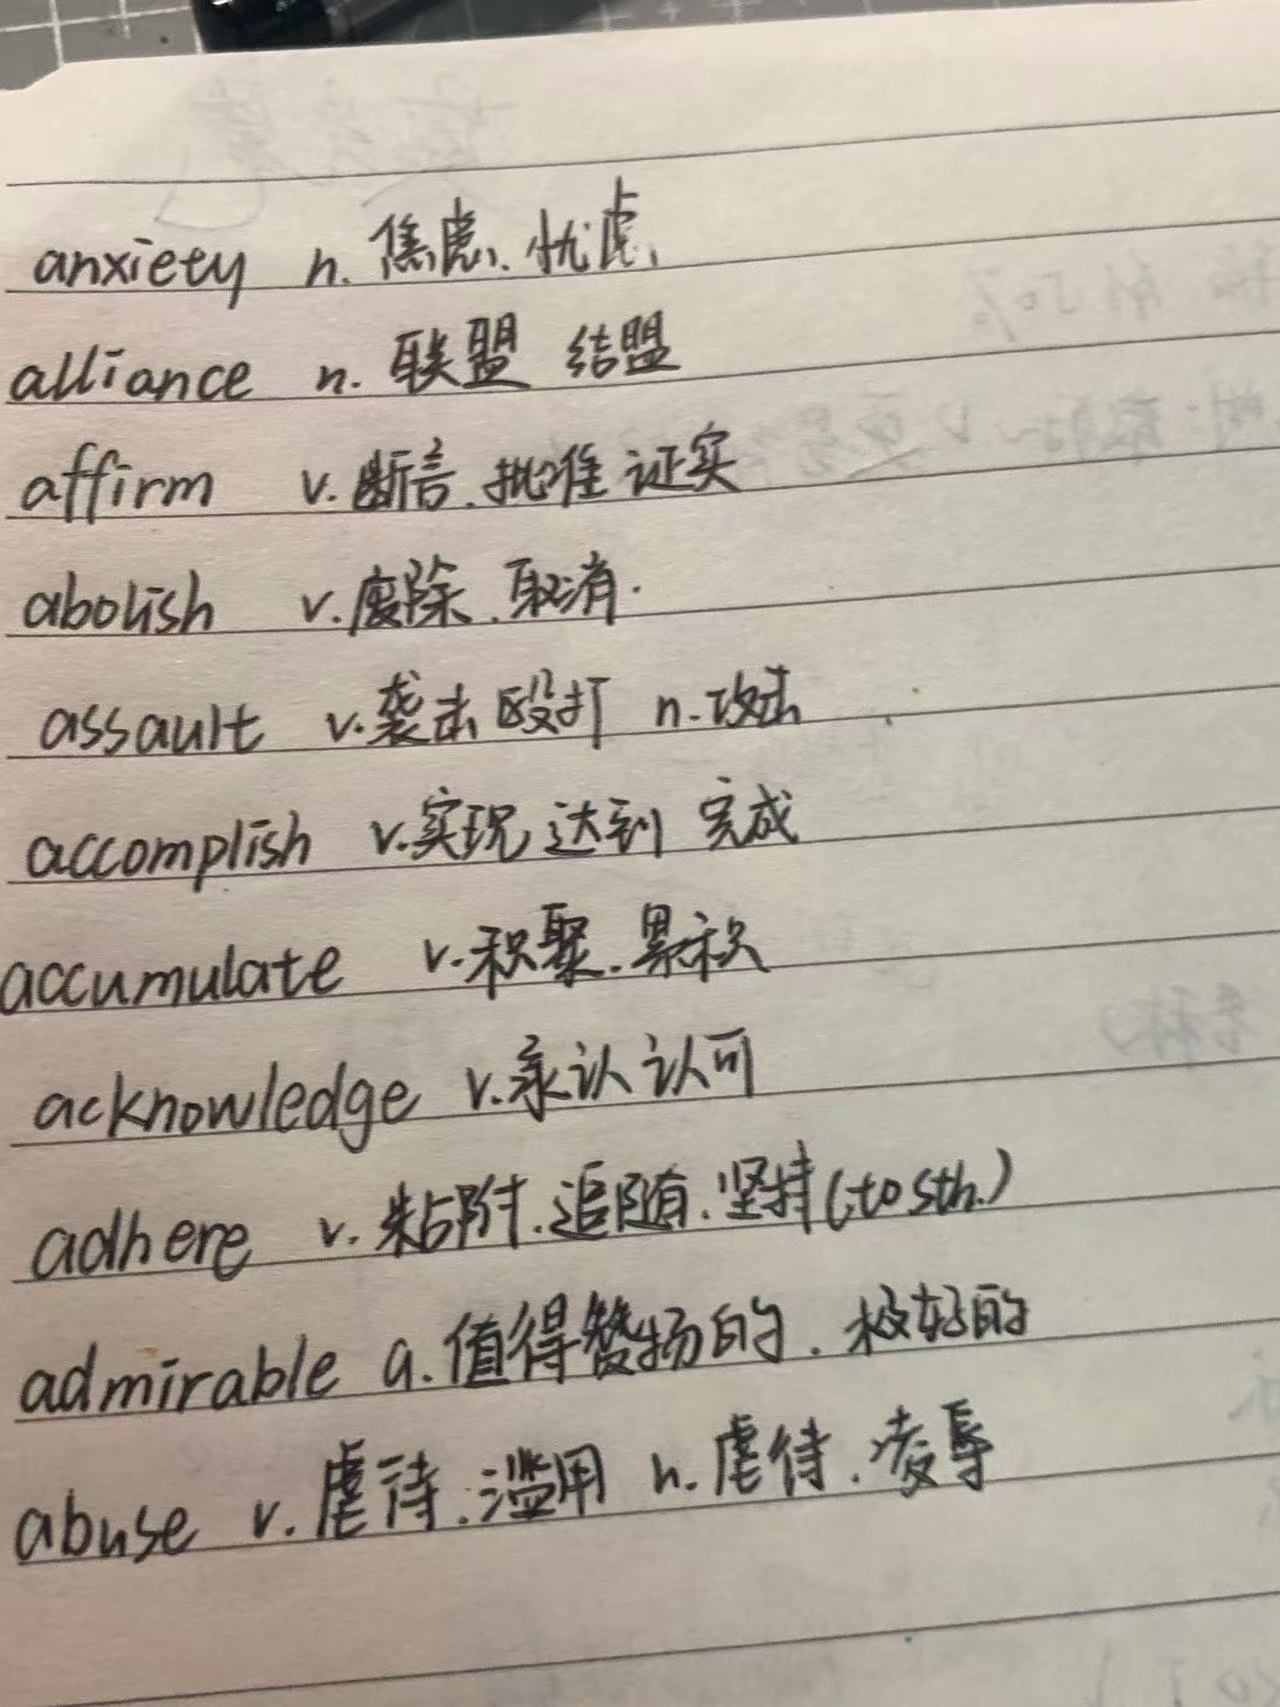 anxiety n. 焦虑、忧虑
alliance n. 联盟 结盟
affirm v. 断言、批准 证实
abolish v. 废除、取消.
assault v. 袭击 殴打 n. 攻击
accomplish v. 实现 达到 完成
accumulate v. 积聚、累积
acknowledge v. 承认 认可
adhere v. 粘附、追随、坚持(to sth.)
admirable a. 值得赞扬的、极好的
abuse v. 虐待、滥用 n. 虐待、凌辱